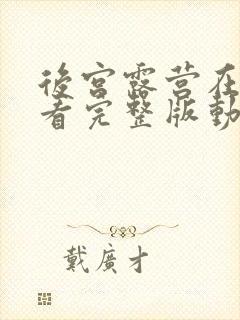 後宮露营在
看完整版動
戴廣才